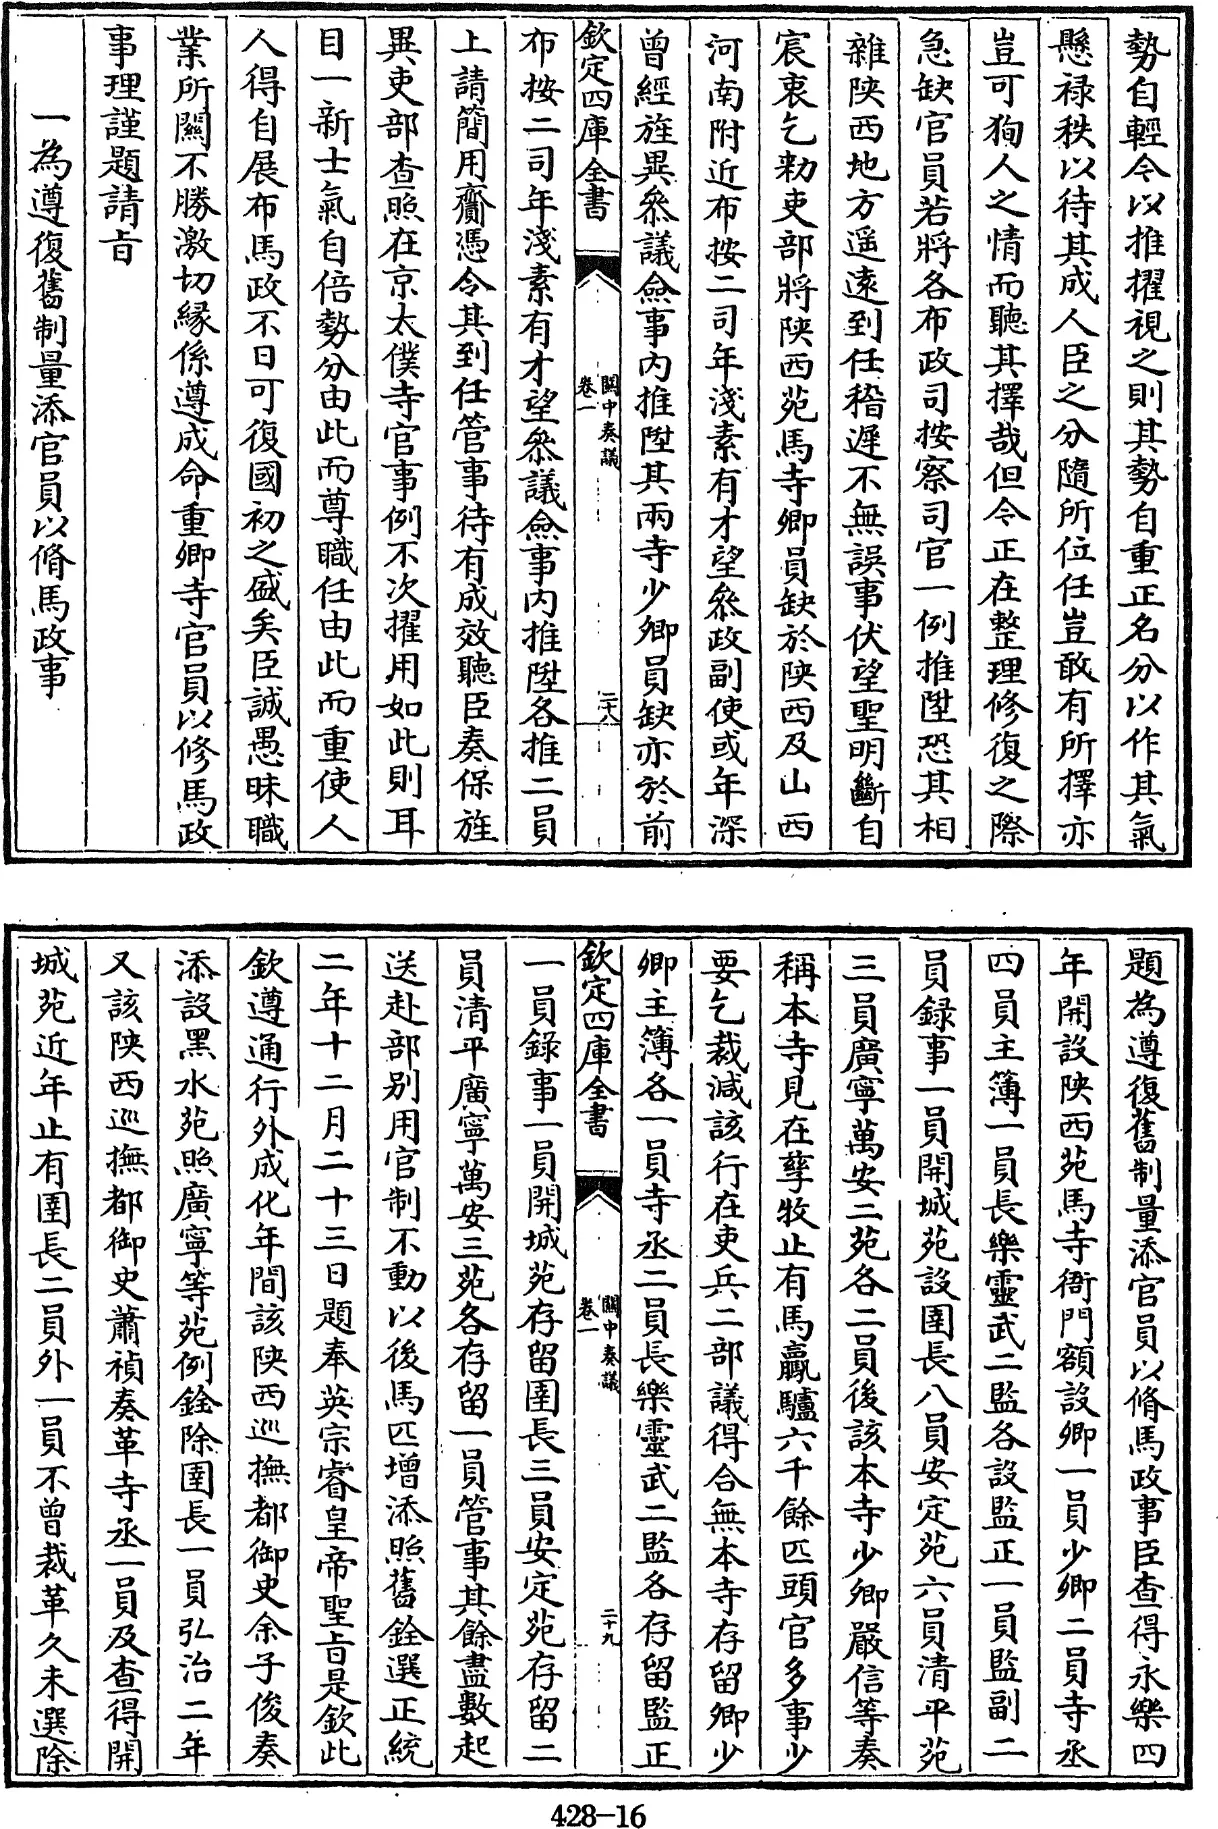 勢自輕令以推擢視之則其勢自重正名分以作其氣
懸禄秩以待其成人臣之分隨所位任豈敢有所擇亦
豈可狥人之情而聽其擇哉但令正在整理修復之際
急缺官員若將各布政司按察司官一例推陞恐其相
雜陜西地方遥遠到任稽遲不無誤事伏望聖明斷自
宸衷乞勑吏部將陜西苑馬寺卿員缺於陜西及山西
河南附近布按二司年淺素有才望叅政副使或年深
曾經旌異叅議僉事内推陞其兩寺少卿員缺亦於前
欽定四庫全書
關中奏議
卷一
二十八
布按二司年淺素有才望叅議僉事内推陞各推二員
上請簡用齎憑令其到任管事待有成效聽臣奏保旌
異吏部查照在京太僕寺官事例不次擢用如此則耳
目一新士氣自倍勢分由此而尊職任由此而重使人
人得自展布馬政不日可復國初之盛矣臣誠愚昧職
業所關不勝激切縁係遵成命重卿寺官員以修馬政
事理謹題請旨
一為遵復舊制量添官員以脩馬政事
題為遵復舊制量添官員以脩馬政事臣查得永樂四
年開設陜西苑馬寺衙門額設卿一員少卿二員寺丞
四員主簿一員長樂靈武二監各設監正一員監副二
員録事一員開城苑設圉長八員安定苑六員清平苑
三員廣寧萬安二苑各二員後該本寺少卿嚴信等奏
稱本寺見在孳牧止有馬驘驢六千餘匹頭官多事少
要乞裁減該行在吏兵二部議得合無本寺存留卿少
卿主簿各一員寺丞二員長樂靈武二監各存留監正
欽定四庫全書
關中奏議
卷一
二十九
一員録事一員開城苑存留圉長三員安定苑存留二
員清平廣寧萬安三苑各存留一員管事其餘盡數起
送赴部别用官制不動以後馬匹增添照舊銓選正統
二年十二月二十三日題奉英宗睿皇帝聖旨是欽此
欽遵通行外成化年間該陜西巡撫都御史余子俊奏
添設黑水苑照廣寧等苑例銓除圉長一員弘治二年
又該陜西巡撫都御史蕭禎奏革寺丞一員及查得開
城苑近年止有圉長二員外一員不曾裁革久未選除
428-16